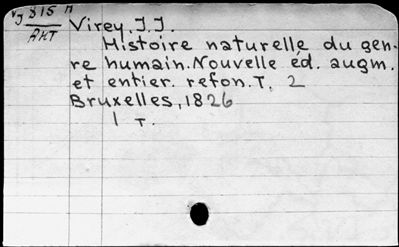 VJ 815 M
АКТ
Virey, J. J.
Histoire naturelle du gen-
re humain. Nouvelle éd. augm.
et entier. refon. T. 2
Bruxelles, 1826
1 т.